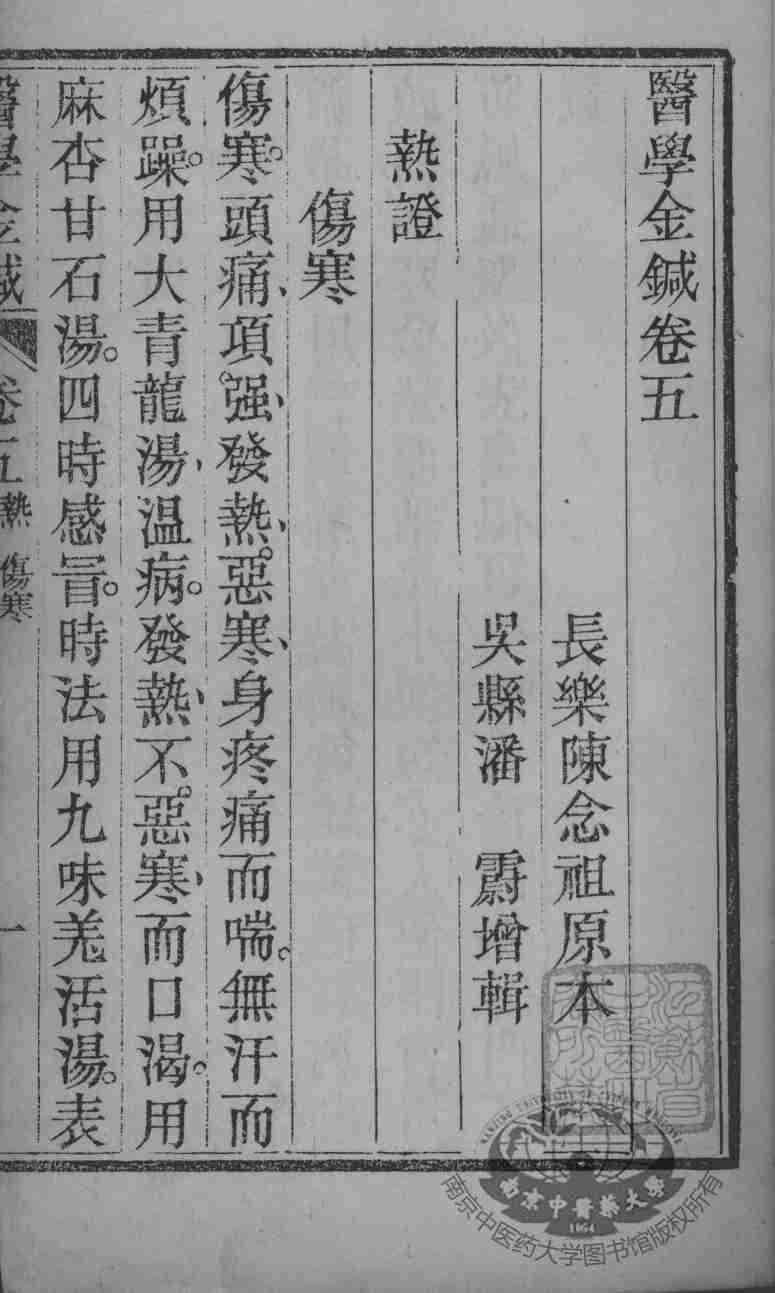 醫學金鍼卷五
長樂陳念祖原本
吳縣潘 霨增輯
熱證
傷寒
傷寒。頭痛、項。强、發熱、。惡寒、身疼痛而喘。無汗而
煩躁。用大青龍湯、温病。發熱、不。惡寒、而口渴。用
麻杏甘石湯。四時感冒。時法用九味羌活湯。表
醫學金鍼 卷五 熱 傷寒 一
南京中醫藥大學
1954
南京中医药大学图书馆版权所有